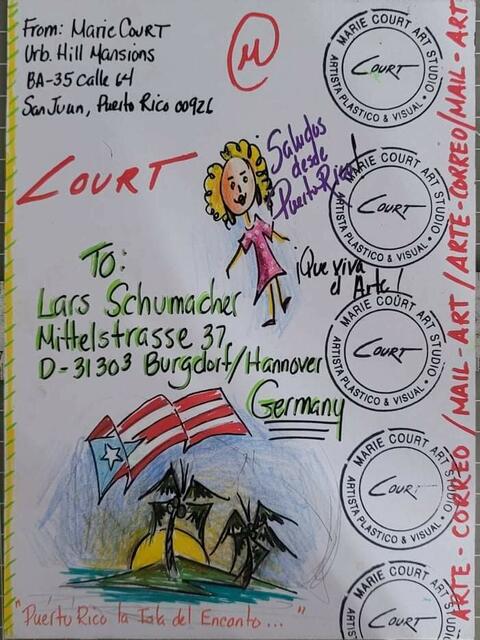 From: Marie Court
Urb. Hill Mansions
BA-35 Calle 64
San Juan, Puerto Rico 00926
COURT
¡Saludos
desde
Puerto Rico!
¡Que viva
el Arte!
To:
Lars Schumacher
Mittelstrasse 37
D-31303 Burgdorf/Hannover
Germany
"Puerto Rico la Isla del Encanto..."
MARIE COURT ART STUDIO
COURT
ARTISTA PLASTICO & VISUAL
MARIE COURT ART STUDIO
COURT
ARTISTA PLASTICO & VISUAL
MARIE COURT ART STUDIO
COURT
ARTISTA PLASTICO & VISUAL
MARIE COURT ART STUDIO
COURT
ARTISTA PLASTICO & VISUAL
MARIE COURT ART STUDIO
COURT
ARTE-CORREO/MAIL-ART/ARTE-CORREO/MAIL-ART